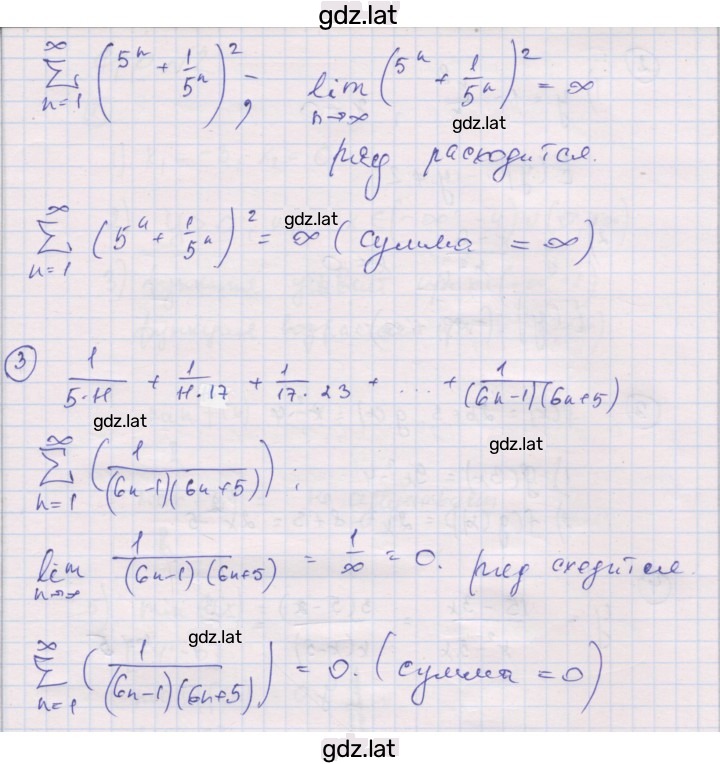 gdz.lat
∞ ∑ n=1 (5^n + 1/5^n)^2 ; lim n→∞ (5^n + 1/5^n)^2 = ∞
gdz.lat
ряд расходится.
gdz.lat
∞ ∑ n=1 (5^n + 1/5^n)^2 = ∞ (сумма = ∞)
③ 1/(5·11) + 1/(11·17) + 1/(17·23) + ... + 1/((6n-1)(6n+5))
gdz.lat
gdz.lat
∞ ∑ n=1 (1/((6n-1)(6n+5))) ;
lim n→∞ 1/((6n-1)(6n+5)) = 1/∞ = 0. ряд сходится.
gdz.lat
∞ ∑ n=1 (1/((6n-1)(6n+5))) = 0. (сумма = 0)
gdz.lat